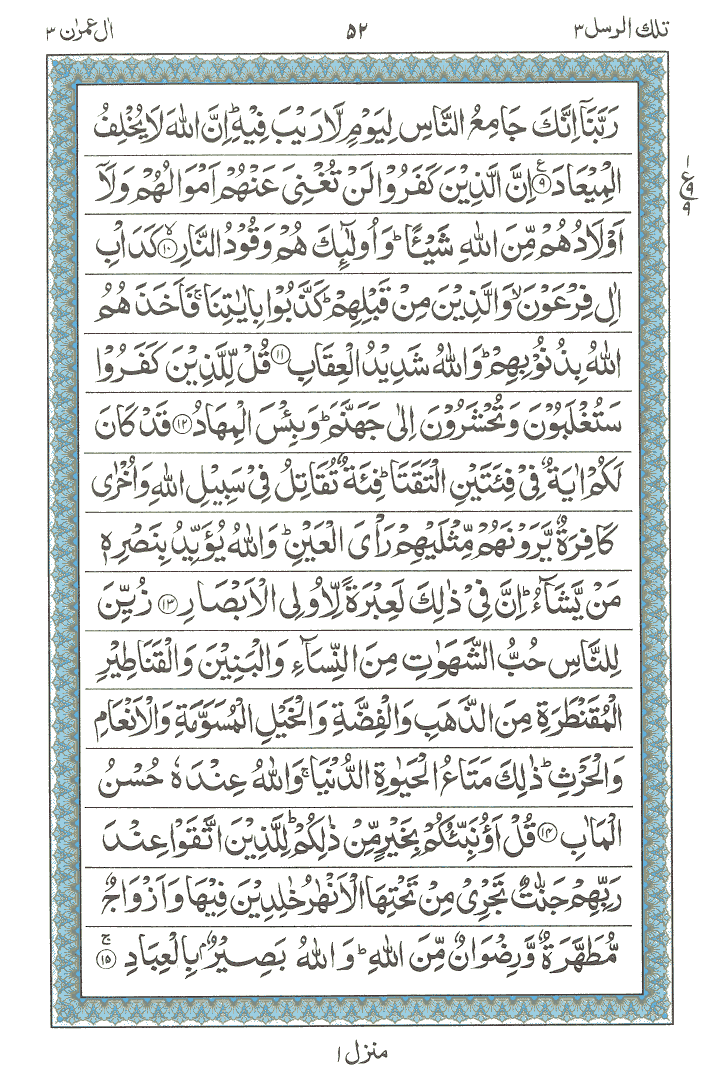 تلك الرسل ٣
٥٢
اٰل عمرٰن ٣
رَبَّنَاۤ اِنَّكَ جَامِعُ النَّاسِ لِیَوْمٍ لَّا رَیْبَ فِیْهِ ؕ اِنَّ اللّٰهَ لَا یُخْلِفُ
الْمِیْعَادَ ﴿٩﴾ ع اِنَّ الَّذِیْنَ كَفَرُوْا لَنْ تُغْنِیَ عَنْهُمْ اَمْوَالُهُمْ وَلَاۤ
ع ١ ٩ ٩
اَوْلَادُهُمْ مِّنَ اللّٰهِ شَیْـًٔا ؕ وَاُولٰٓىِٕكَ هُمْ وَقُوْدُ النَّارِ ﴿١٠﴾ ۙ كَدَاْبِ
اٰلِ فِرْعَوْنَ ۙ وَالَّذِیْنَ مِنْ قَبْلِهِمْ ؕ كَذَّبُوْا بِاٰیٰتِنَا ۚ فَاَخَذَهُمُ
اللّٰهُ بِذُنُوْبِهِمْ ؕ وَاللّٰهُ شَدِیْدُ الْعِقَابِ ﴿١١﴾ قُلْ لِّلَّذِیْنَ كَفَرُوْا
سَتُغْلَبُوْنَ وَتُحْشَرُوْنَ اِلٰی جَهَنَّمَ ؕ وَبِئْسَ الْمِهَادُ ﴿١٢﴾ قَدْ كَانَ
لَكُمْ اٰیَةٌ فِیْ فِئَتَیْنِ الْتَقَتَا ؕ فِئَةٌ تُقَاتِلُ فِیْ سَبِیْلِ اللّٰهِ وَاُخْرٰی
كَافِرَةٌ یَّرَوْنَهُمْ مِّثْلَیْهِمْ رَاْیَ الْعَیْنِ ؕ وَاللّٰهُ یُؤَیِّدُ بِنَصْرِهٖ
مَنْ یَّشَآءُ ؕ اِنَّ فِیْ ذٰلِكَ لَعِبْرَةً لِّاُولِی الْاَبْصَارِ ﴿١٣﴾ زُیِّنَ
لِلنَّاسِ حُبُّ الشَّهَوٰتِ مِنَ النِّسَآءِ وَالْبَنِیْنَ وَالْقَنَاطِیْرِ
الْمُقَنْطَرَةِ مِنَ الذَّهَبِ وَالْفِضَّةِ وَالْخَیْلِ الْمُسَوَّمَةِ وَالْاَنْعَامِ
وَالْحَرْثِ ؕ ذٰلِكَ مَتَاعُ الْحَیٰوةِ الدُّنْیَا ۚ وَاللّٰهُ عِنْدَهٗ حُسْنُ
الْمَاٰبِ ﴿١٤﴾ قُلْ اَؤُنَبِّئُكُمْ بِخَیْرٍ مِّنْ ذٰلِكُمْ ؕ لِلَّذِیْنَ اتَّقَوْا عِنْدَ
رَبِّهِمْ جَنّٰتٌ تَجْرِیْ مِنْ تَحْتِهَا الْاَنْهٰرُ خٰلِدِیْنَ فِیْهَا وَاَزْوَاجٌ
مُّطَهَّرَةٌ وَّرِضْوَانٌ مِّنَ اللّٰهِ ؕ وَاللّٰهُ بَصِیْرٌۢ بِالْعِبَادِ ﴿١٥﴾ ۚ
منزل ١